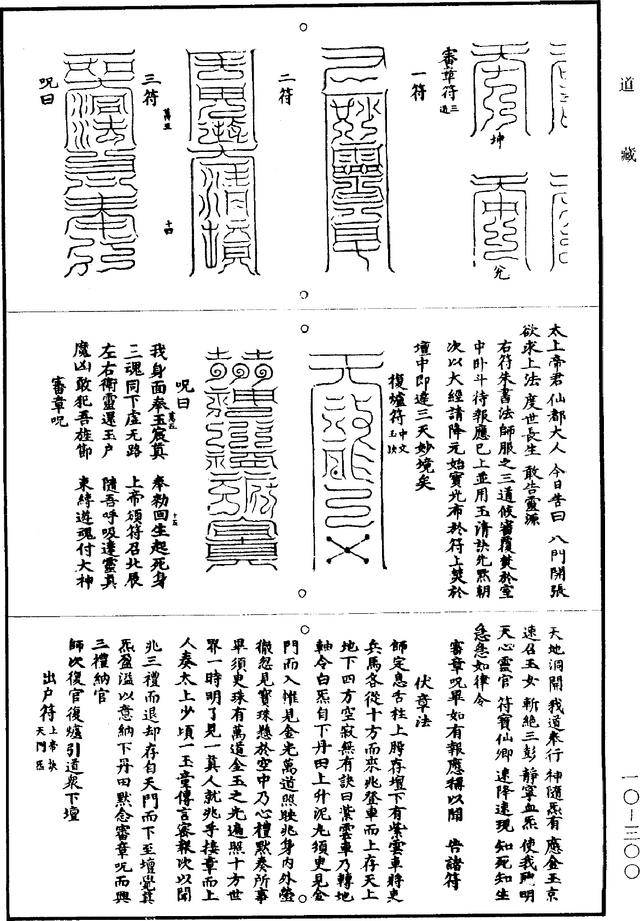 道藏
坤
兊
審章符三道
一符
二符
三符
呪曰
太上帝君 仙都大人 今日告曰 八門開張
欲求上法 度世長生 敢告靈源
右符朱書法師服之三道候審覆焚於室
中卧斗待報應已上並用玉清訣先點朝
次以大經請降元始寶光布於符上焚於
壇中即達三天妙境矣
復爐符中文玉訣
呪曰
我身面奉玉宸真 奉勑回生起死身
三魂同下虛无路 上帝頒符召北辰
左右衛靈還玉户 隨吾呼吸達靈真
魔凶敢犯吾旌節 束縛遊魂付大神
審章呪
天地洞開 我道奉行 神隨炁有 應金玉京
速召玉女 斬絶三彭 靜寧血炁 使我 明
天心靈官 符寶仙卿 速降速現 知死知生
急急如律令
審章呪畢如有報應稱以聞 告諸符
伏章法
師定息舌柱上腭存壇下有紫雲車將吏
兵馬各從十方而來兆登車而上存天上
地下四方空寂無有訣曰紫雲車乃轉地
軸令白炁自下丹田上升泥丸須臾見金
門而入惟見金光萬道照映兆身内外瑩
徹忽見寶珠懸於空中乃心禮默奏所事
畢須臾珠有萬道金玉之光遍照十方世
界一時明了見一真人就兆手接章而上
入奏太上少頃一玉童傳言密報次以聞
兆三禮而退却存自天門而下至壇覺真
炁盈溢以意納下丹田默念審章呪而興
三禮納官
師次復官復爐引道衆下壇
出户符上帝訣天門炁
一〇—三〇〇